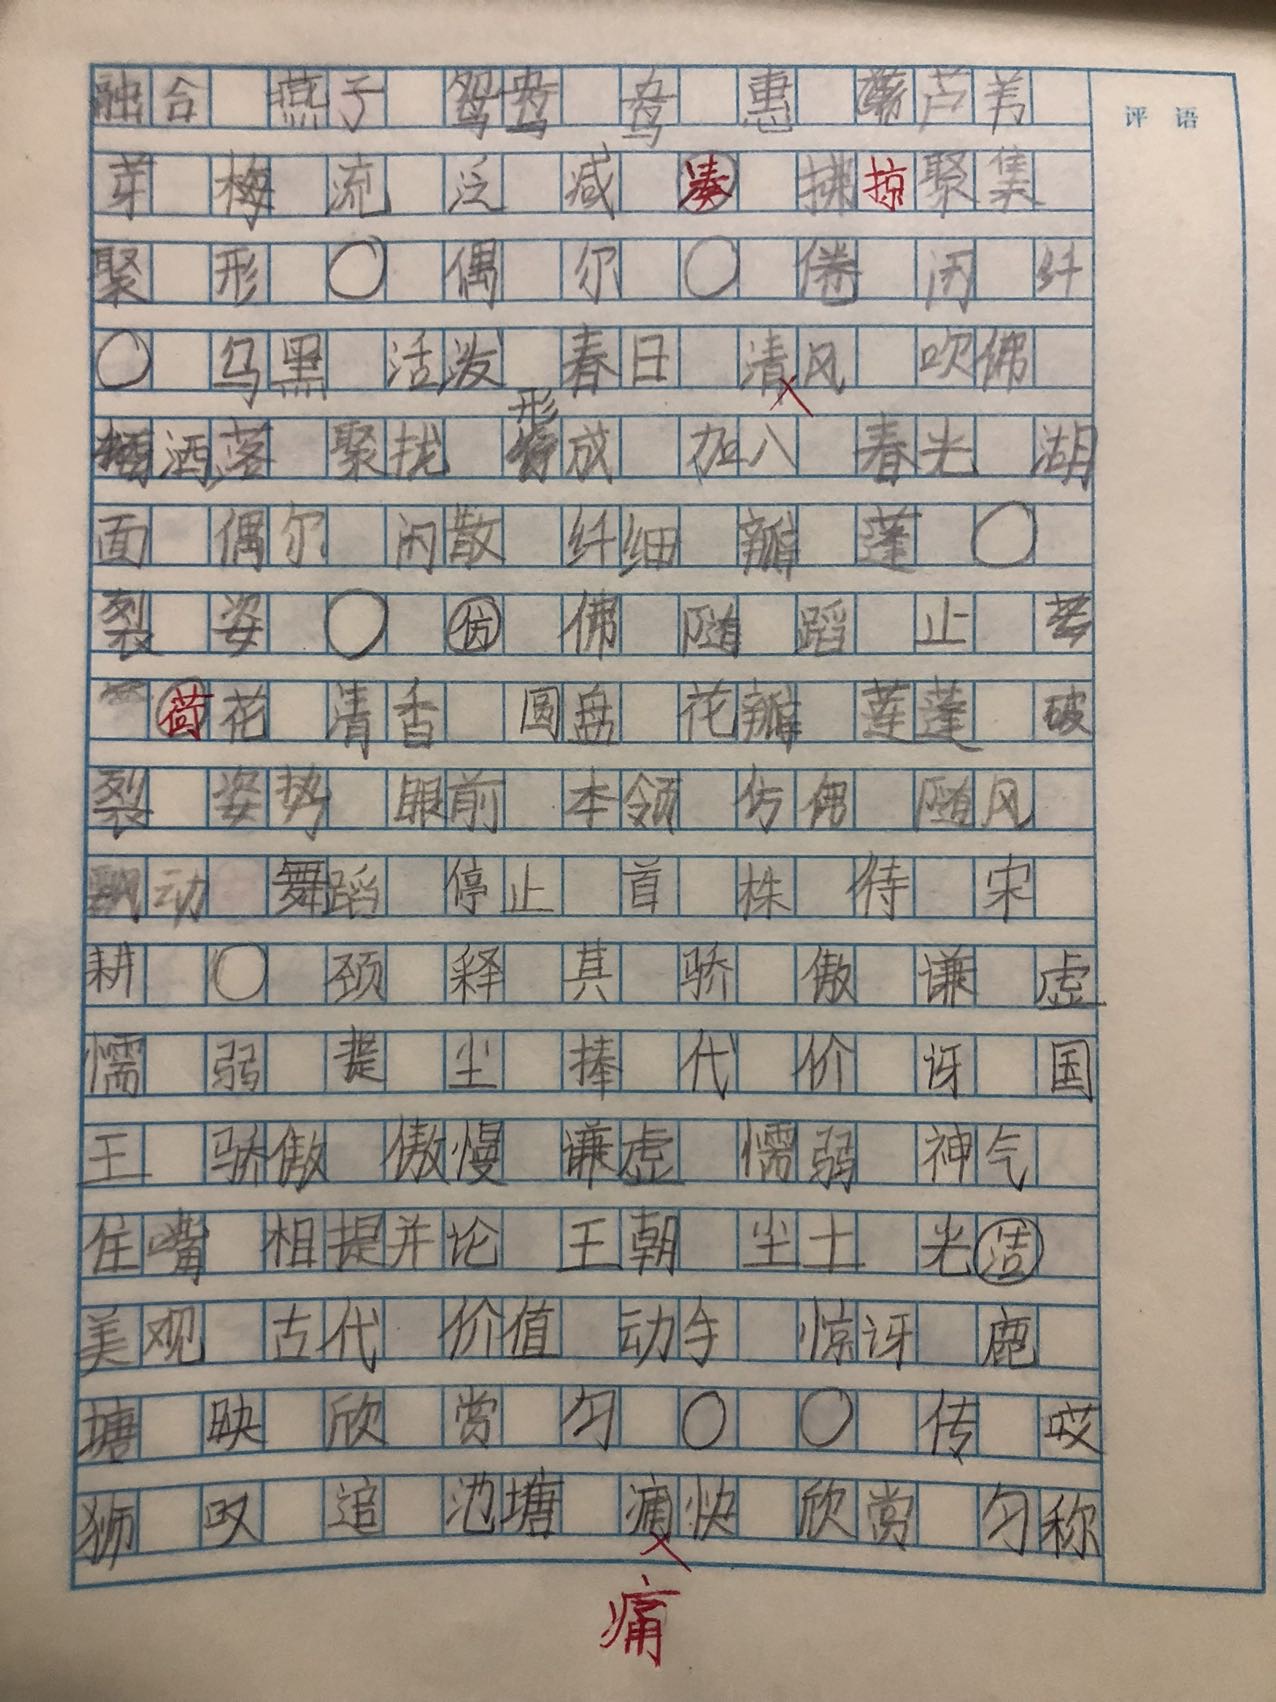 评语
融合 燕子 鸳鸯 鸯 惠 芦苇
芽 梅 流 泛 减 凑 拂 掠 聚集
聚 形 〇 偶 尔 〇 倦 闲 纤
〇 乌黑 活泼 春日 清风 吹佛
洒落 聚拢 形成 加入 春光 湖
面 偶尔 闲散 纤细 瓣 蓬 〇
裂 姿 〇 仿 佛 随 蹈 止
荷花 清香 圆盘 花瓣 莲蓬 破
裂 姿势 眼前 本领 仿佛 随风
飘动 舞蹈 停止 首 株 待 宋
耕 〇 颈 释 其 骄 傲 谦 虚
懦 弱 提 尘 捧 代 价 讶 国
王 骄傲 傲慢 谦虚 懦弱 神气
住嘴 相提并论 王朝 尘土 光洁
美观 古代 价值 动手 惊讶 鹿
塘 映 欣 赏 匀 〇 〇 传 哎
狮 叹 追 池塘 痛快 欣赏 匀称
痛